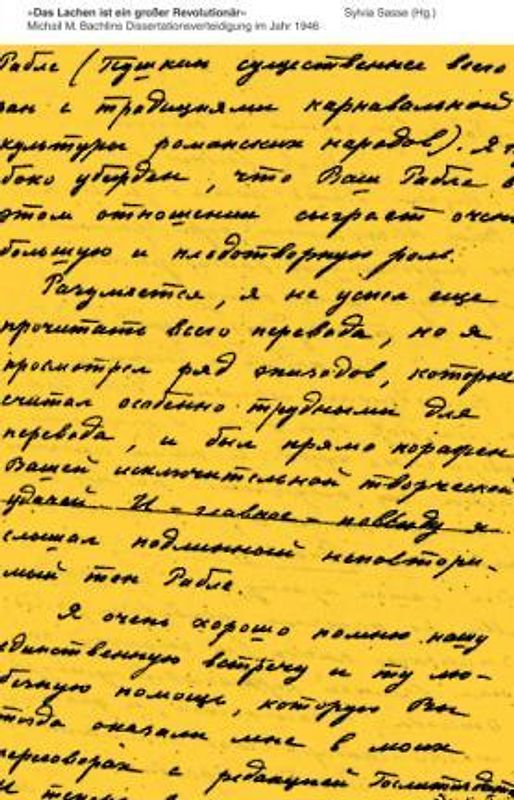 »Das Lachen ist ein großer Revolutionär« Sylvia Sasse (Hg.)
Michail M. Bachtins Dissertationsverteidigung im Jahr 1946
Рабле (Пушкин существеннее всего
зан с традициями карнавальной
культуры романских народов). Я г
боко убежден, что Ваш Рабле в
этом отношении сыграет очен
большую и плодотворную роль.
Разумеется, я не успел еще
прочитать всего перевода, но я
просмотрел ряд эпизодов, которые
считал особенно трудными для
перевода, и был прямо поражен
Вашей исключительной творческой
удачей И – главное – повсюду я
слышал подлинный неповтори-
мый тон Рабле.
Я очень хорошо помню нашу
единственную встречу и ту лю-
безную помощь, которую Вы
тогда оказали мне в моих
переговорах с редакцией Гослитиздат